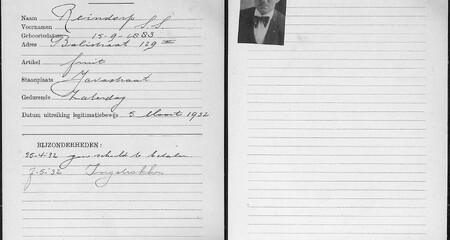 Naam Reindorp
Voornamen S.S.
Geboortedatum 15-9-1883
Adres Balistraat 129 III
Artikel fruit
Staanplaats Javastraat
Gedurende Zaterdag
Datum uitreiking legitimatiebewijs 5 Maart 1932
BIJZONDERHEDEN:
25-4-32 geen schuld te betalen
7-5-32 Ingetrokken